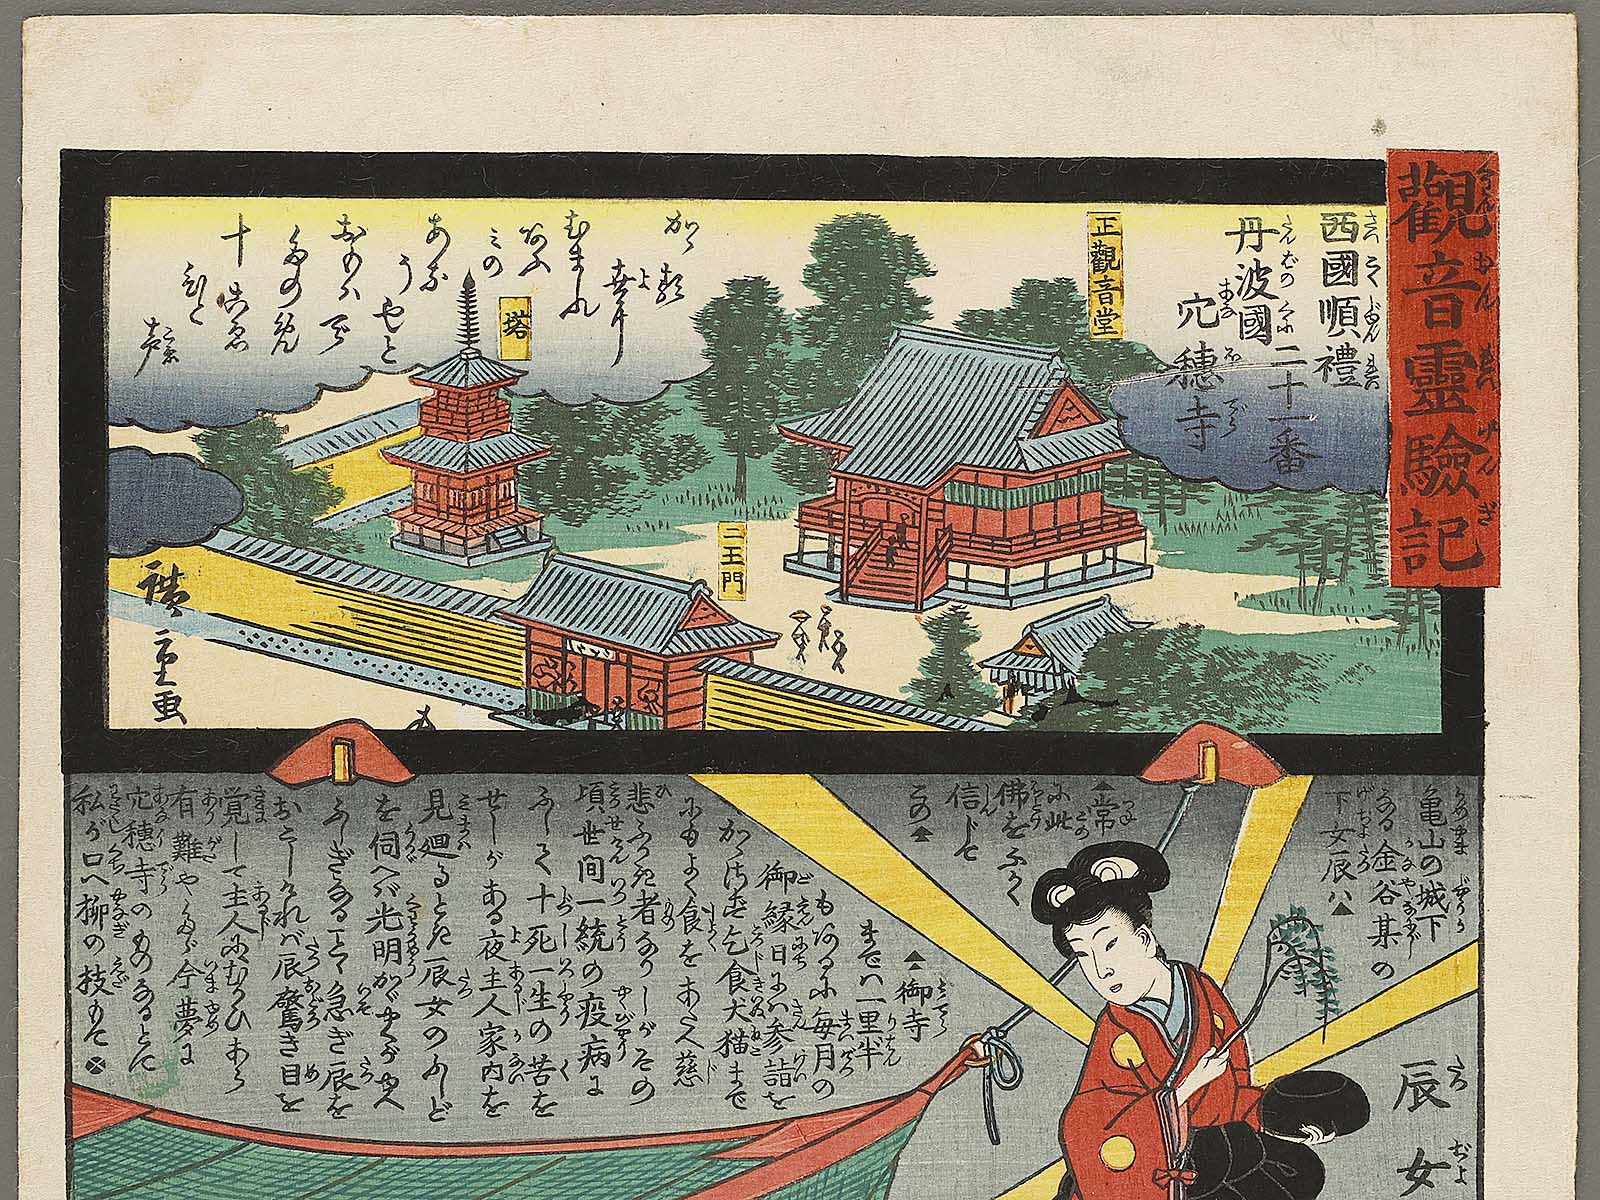 觀音靈驗記
西國順禮
二十一番
丹波國
穴穂寺
正觀音堂
塔
二王門
かゝる世に
むまれ
あふ
みの
あな
うやと
おもハで
たのめ
十こゑ
ひと
声
廣重画
亀山の城下
なる金谷某の
下女辰ハ▲
▲常
に此
佛をふかく
信じて
この▲
▲御寺
までハ一里半
もあるに毎月の
御縁日にハ参詣を
かゝさず乞食犬猫まで
にもよく食をあたへ慈
悲ふかき者なりしがその
頃世间一統の疫病に
ふして十死一生の苦を
せしがある夜主人家内を
見廻るとき辰女のふしど
を伺へバ光明かゞやくがゆへ
ふしぎなることゝ急ぎ辰を
おこしければ辰驚き目を
覚して主人にむかひあら
有難やたゞ今夢に
穴穂寺のものなるとて
私が口へ柳の枝もて
辰女